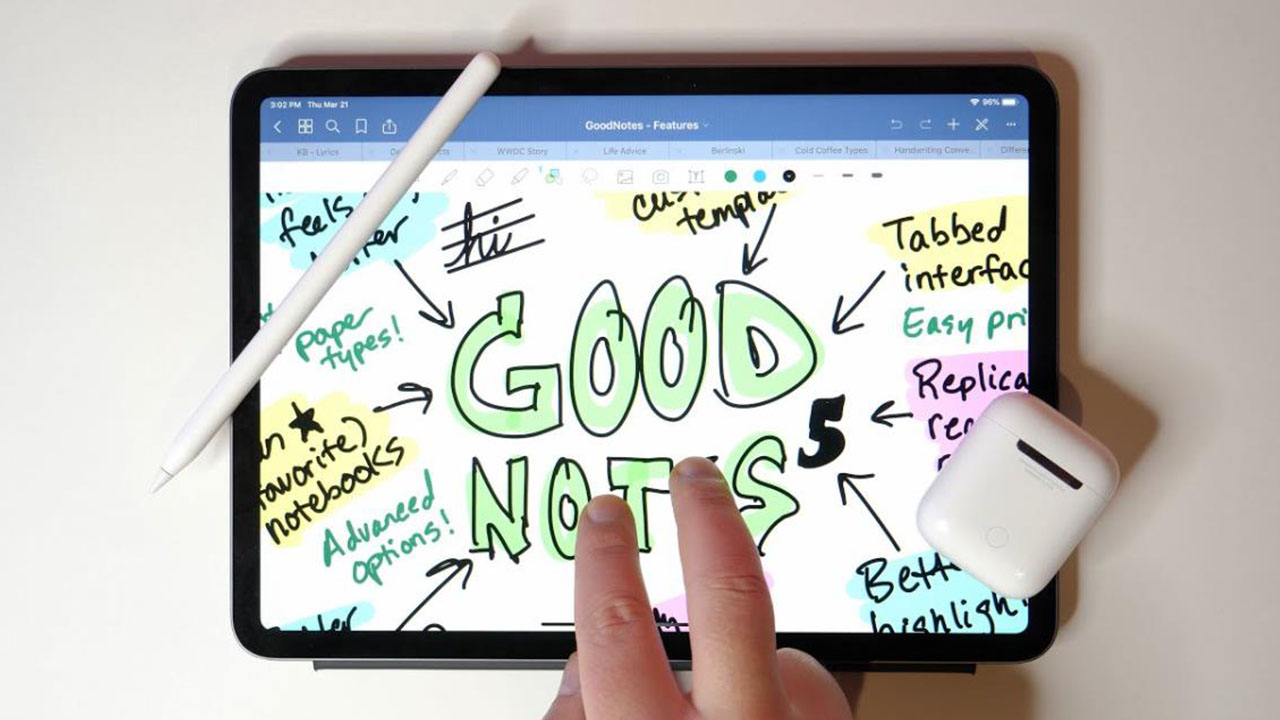 3:02 PM Thu Mar 21
96%
GoodNotes - Features
KB - Lyrics
WWDC Story
Life Advice
Berlinski
Cold Coffee Types
Handwriting Conve...
feels
hi
templa
Tabbed
interfac
Easy pri
paper
types!
GOOD
Replica
5
favorite)
notebooks
NOTES
Advanced
options!
Bett
highligh